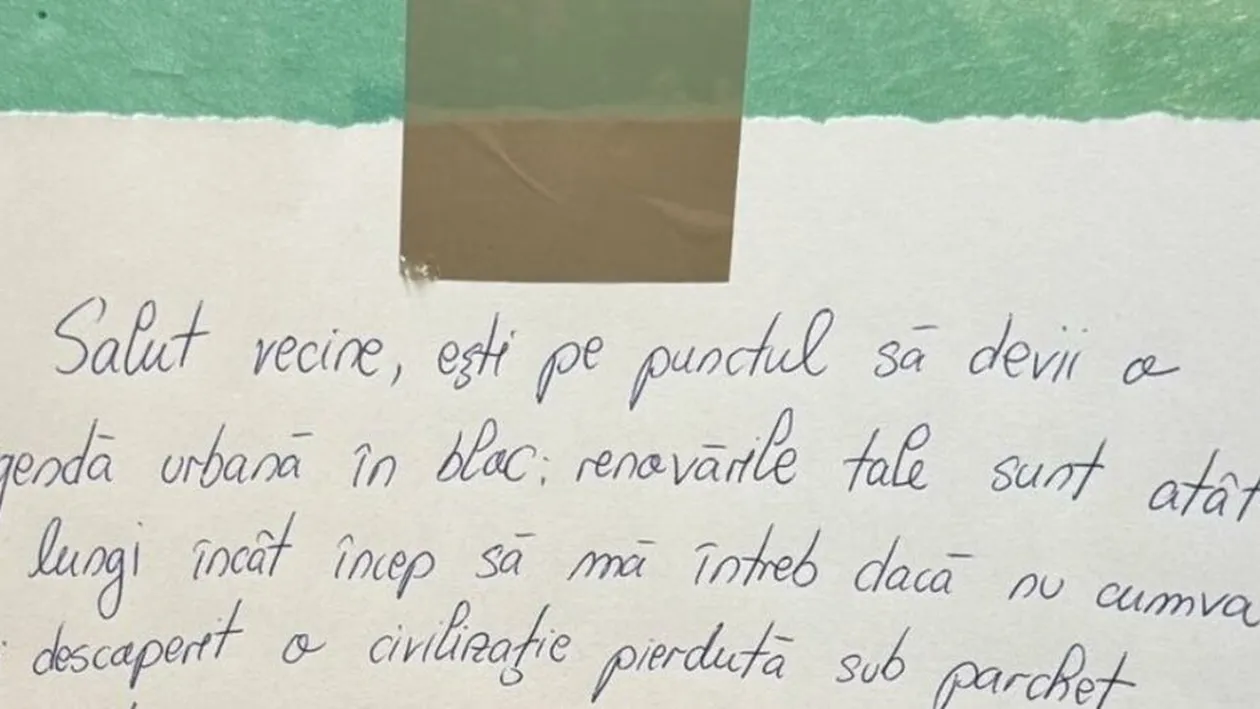 Salut vecine, ești pe punctul să devii o
gendă urbană în bloc: renovările tale sunt atât
lungi încât încep să mă întreb dacă nu cumva
descoperit o civilizație pierdută sub parchet